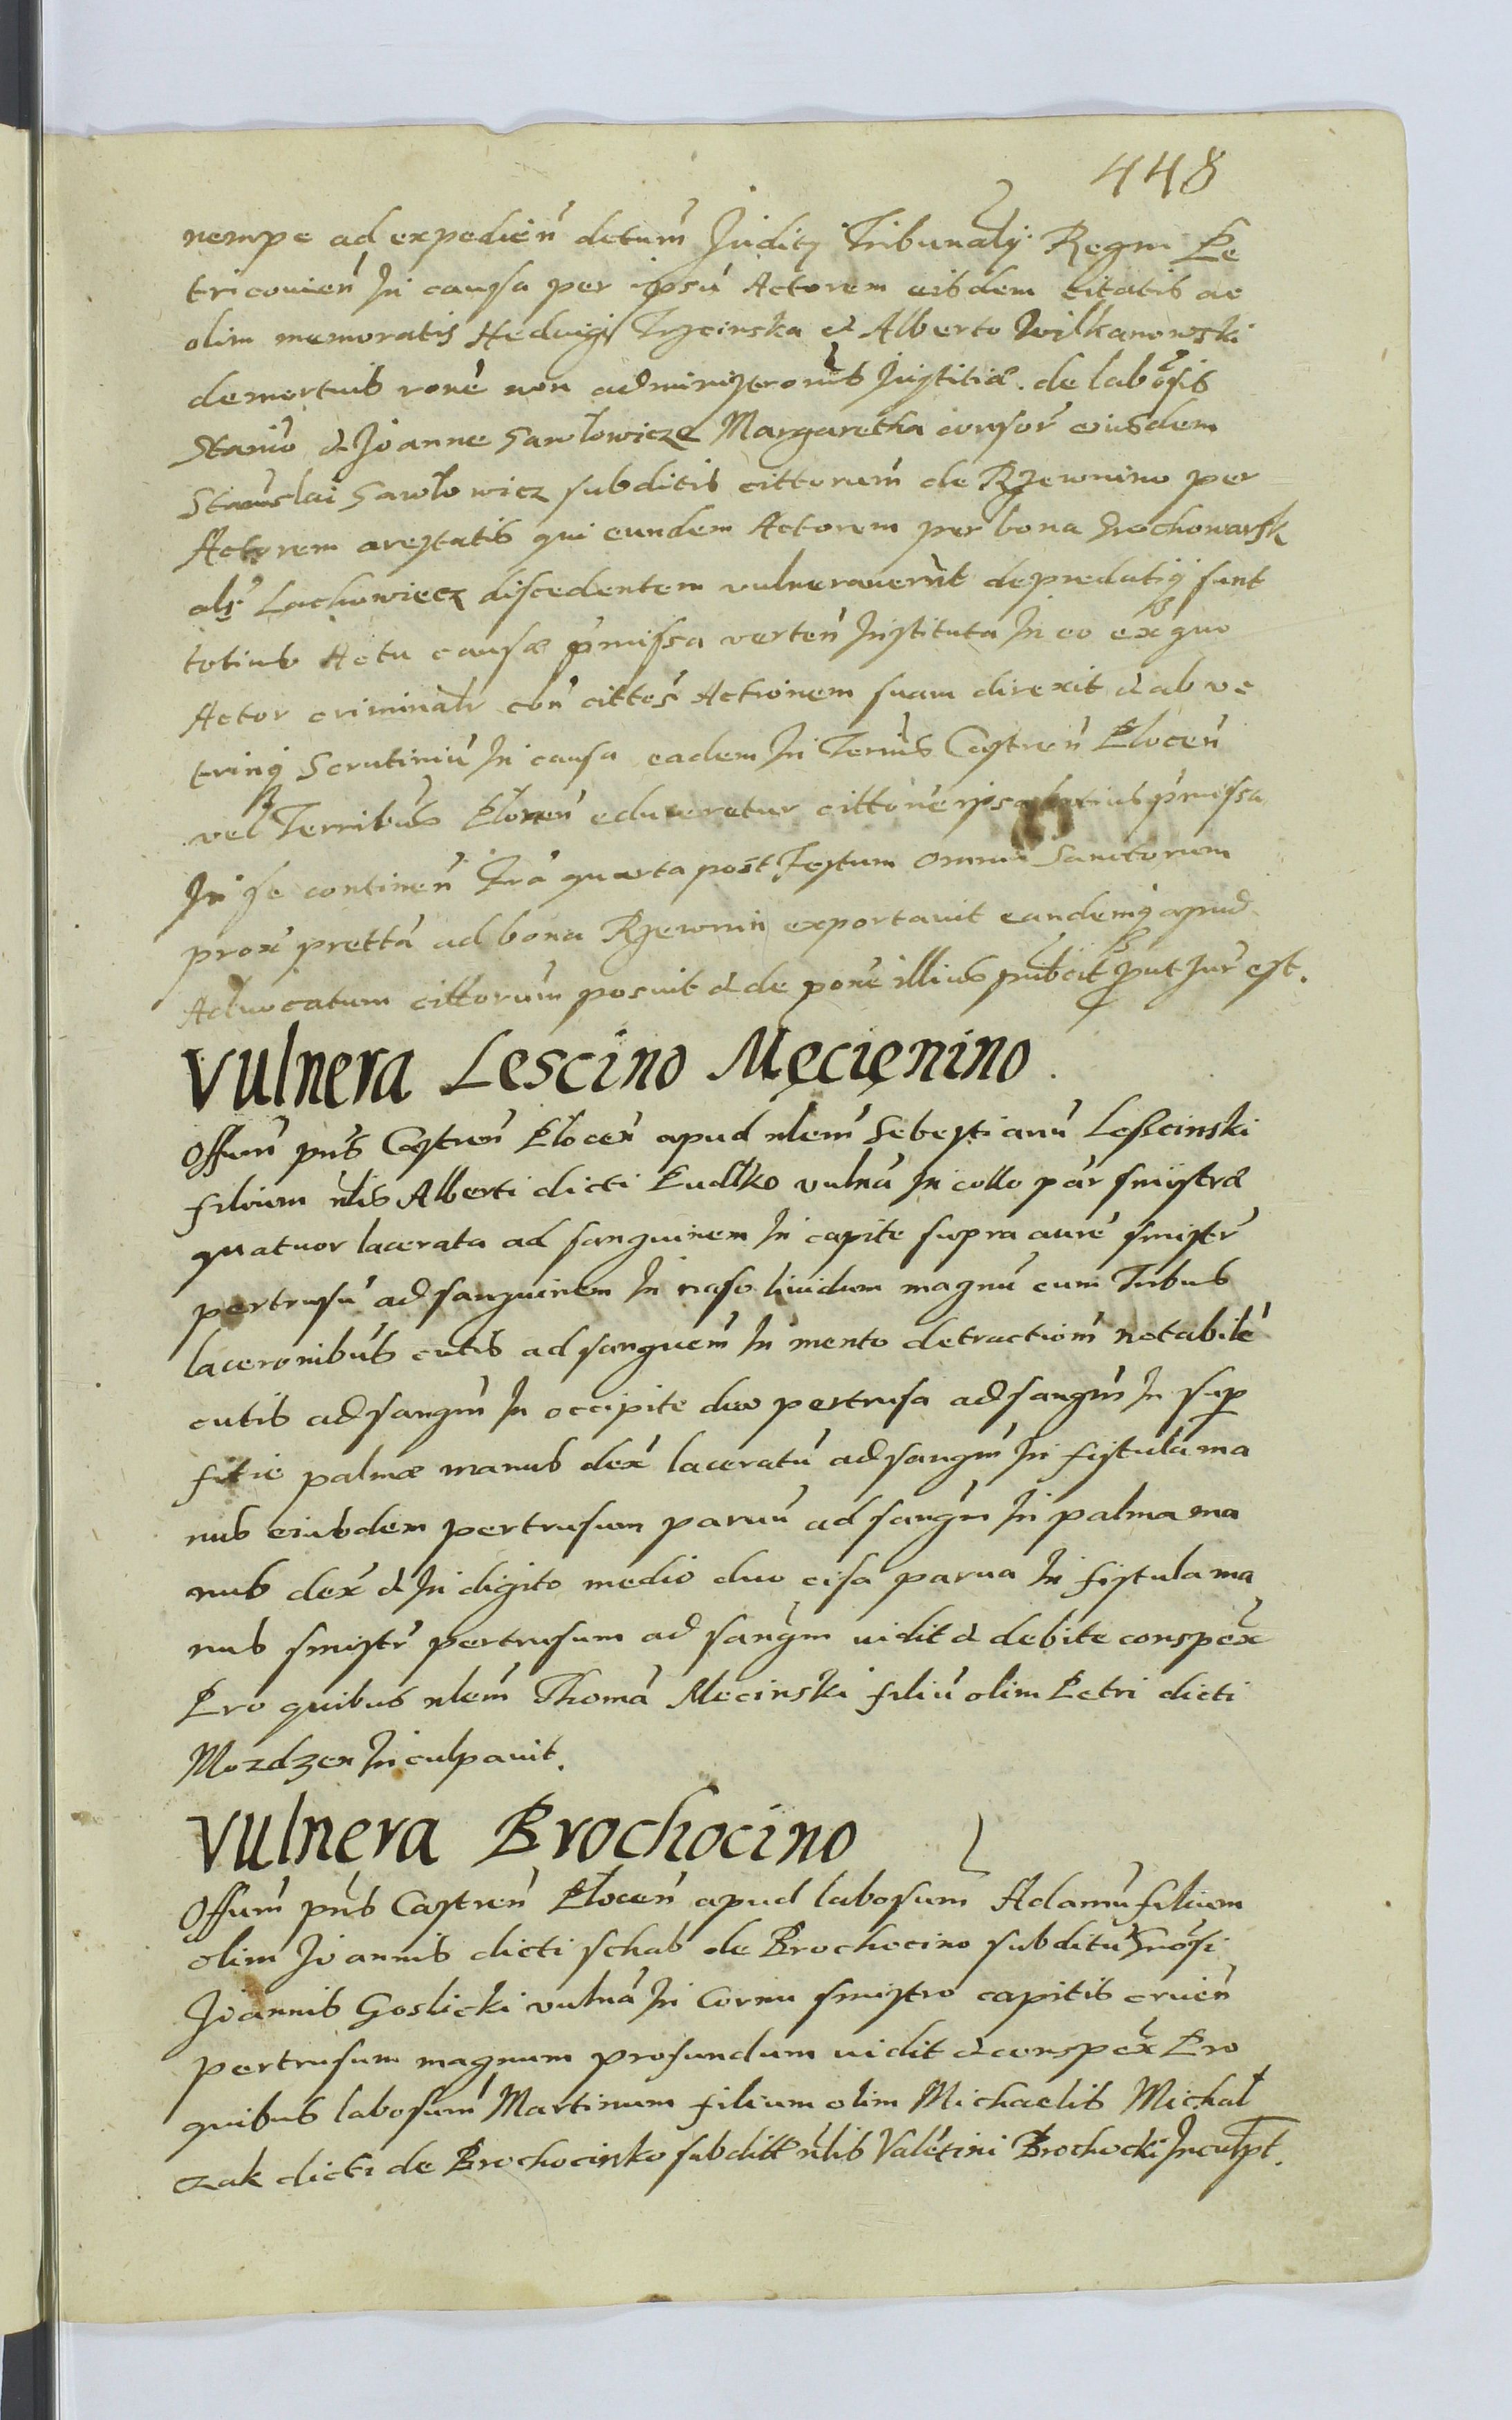 448
nempe ad expedień detum̃ Juditÿ Tribunalÿ Regni Pe
tricovień In causa per ipsũ Actorem eisdem citatis ac
olim memoratis Hedvigi Trzcinska et Alberto Wilkanowski
demortuis ronè non administronis Justitiæ de labosis
et Joanne Sawlowicze Margaretha consor̃ eiusdem
Stanislai Sawlowicz subditis cittorum̃ de Rzewnino per
Actorem arestatis qui eundem Actorem per bona
als̃ Lachowiecz discedentem vulneraverũt depredatiq̃ sunt
totius Actu causæ p̃missa verteń Instituta In eo ex quo
Actor criminalr coñ cittos Actionem suam direxit et ab u
trinq̃ Scrutiniũ In causa eadem In Castreń Płoceń
vel Terribus Płoceń educeretur p̃missa
In se contineń quarta post Festum Omniũ Sanctorum
prox̃ prettã ad bona Rzewnin exportavit eandemq̃ apud
Advocatum cittorum̃ posuit et de ponẽ illius pub̃cit put Jur̃ est.
Vulnera Lescino Męcięnino
Offum̃ pñs Castreń Płoceń apud nlem̃ Sebestianũ Lesscinski
filium ñlis Alberti dicti Pudłko vulnã In collo par̃ sinistræ
quatuor lacerata ad sanguinem In capite supra aurẽ sinistr̃
pertrusũ ad sanguinem In naso lividum magnũ cum Tribus
laceronibus cutis ad sanguem̃ In mento detractiom̃ notabilẽ
cutis ad sangm̃ In occipite duo pertrusa ad sangm̃ In sup
fitie palmæ manus dex̃ laceratũ ad sangm̃ In fistula ma
nus eiusdem pertrusum parvũ ad sangm̃ In palma ma
nus dex̃ et In digito medio duo cisa parva In fistula ma
nus sinistr̃ pertrusum ad sangm̃ vidit et debite conspex̃
Pro quibus nlem̃ Thomã Mecinski filiũ olim Petri dicti
Mozdzen Inculpavit.
Vulnera Brochocino
Offum̃ pñs Castreń Płoceń apud labosum̃ Adamũ filium
olim Joannis dicti schab de Brochocino subditũ Gnosi
Joannis Goslicki vulnã In Cornu sinistro capitis crueń
pertrusum magnum profundum vidit et conspex̃ Pro
quibus labosum̃ Martinum filium olim Michaelis Michał
czak dicti de Brochocinko subditt ñlis Valẽtini Brochocki Inculpt.